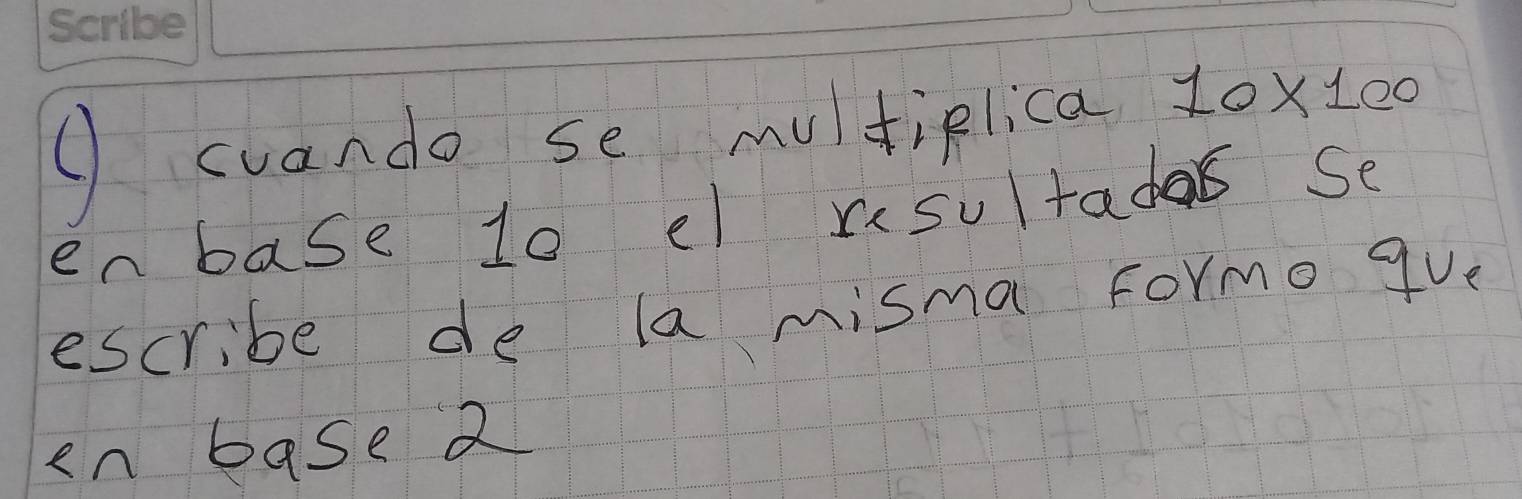 Scribe
c) cuando se multiplica 10x100
en base 10 el resultados se
escribe de la misma formo que
en base 2